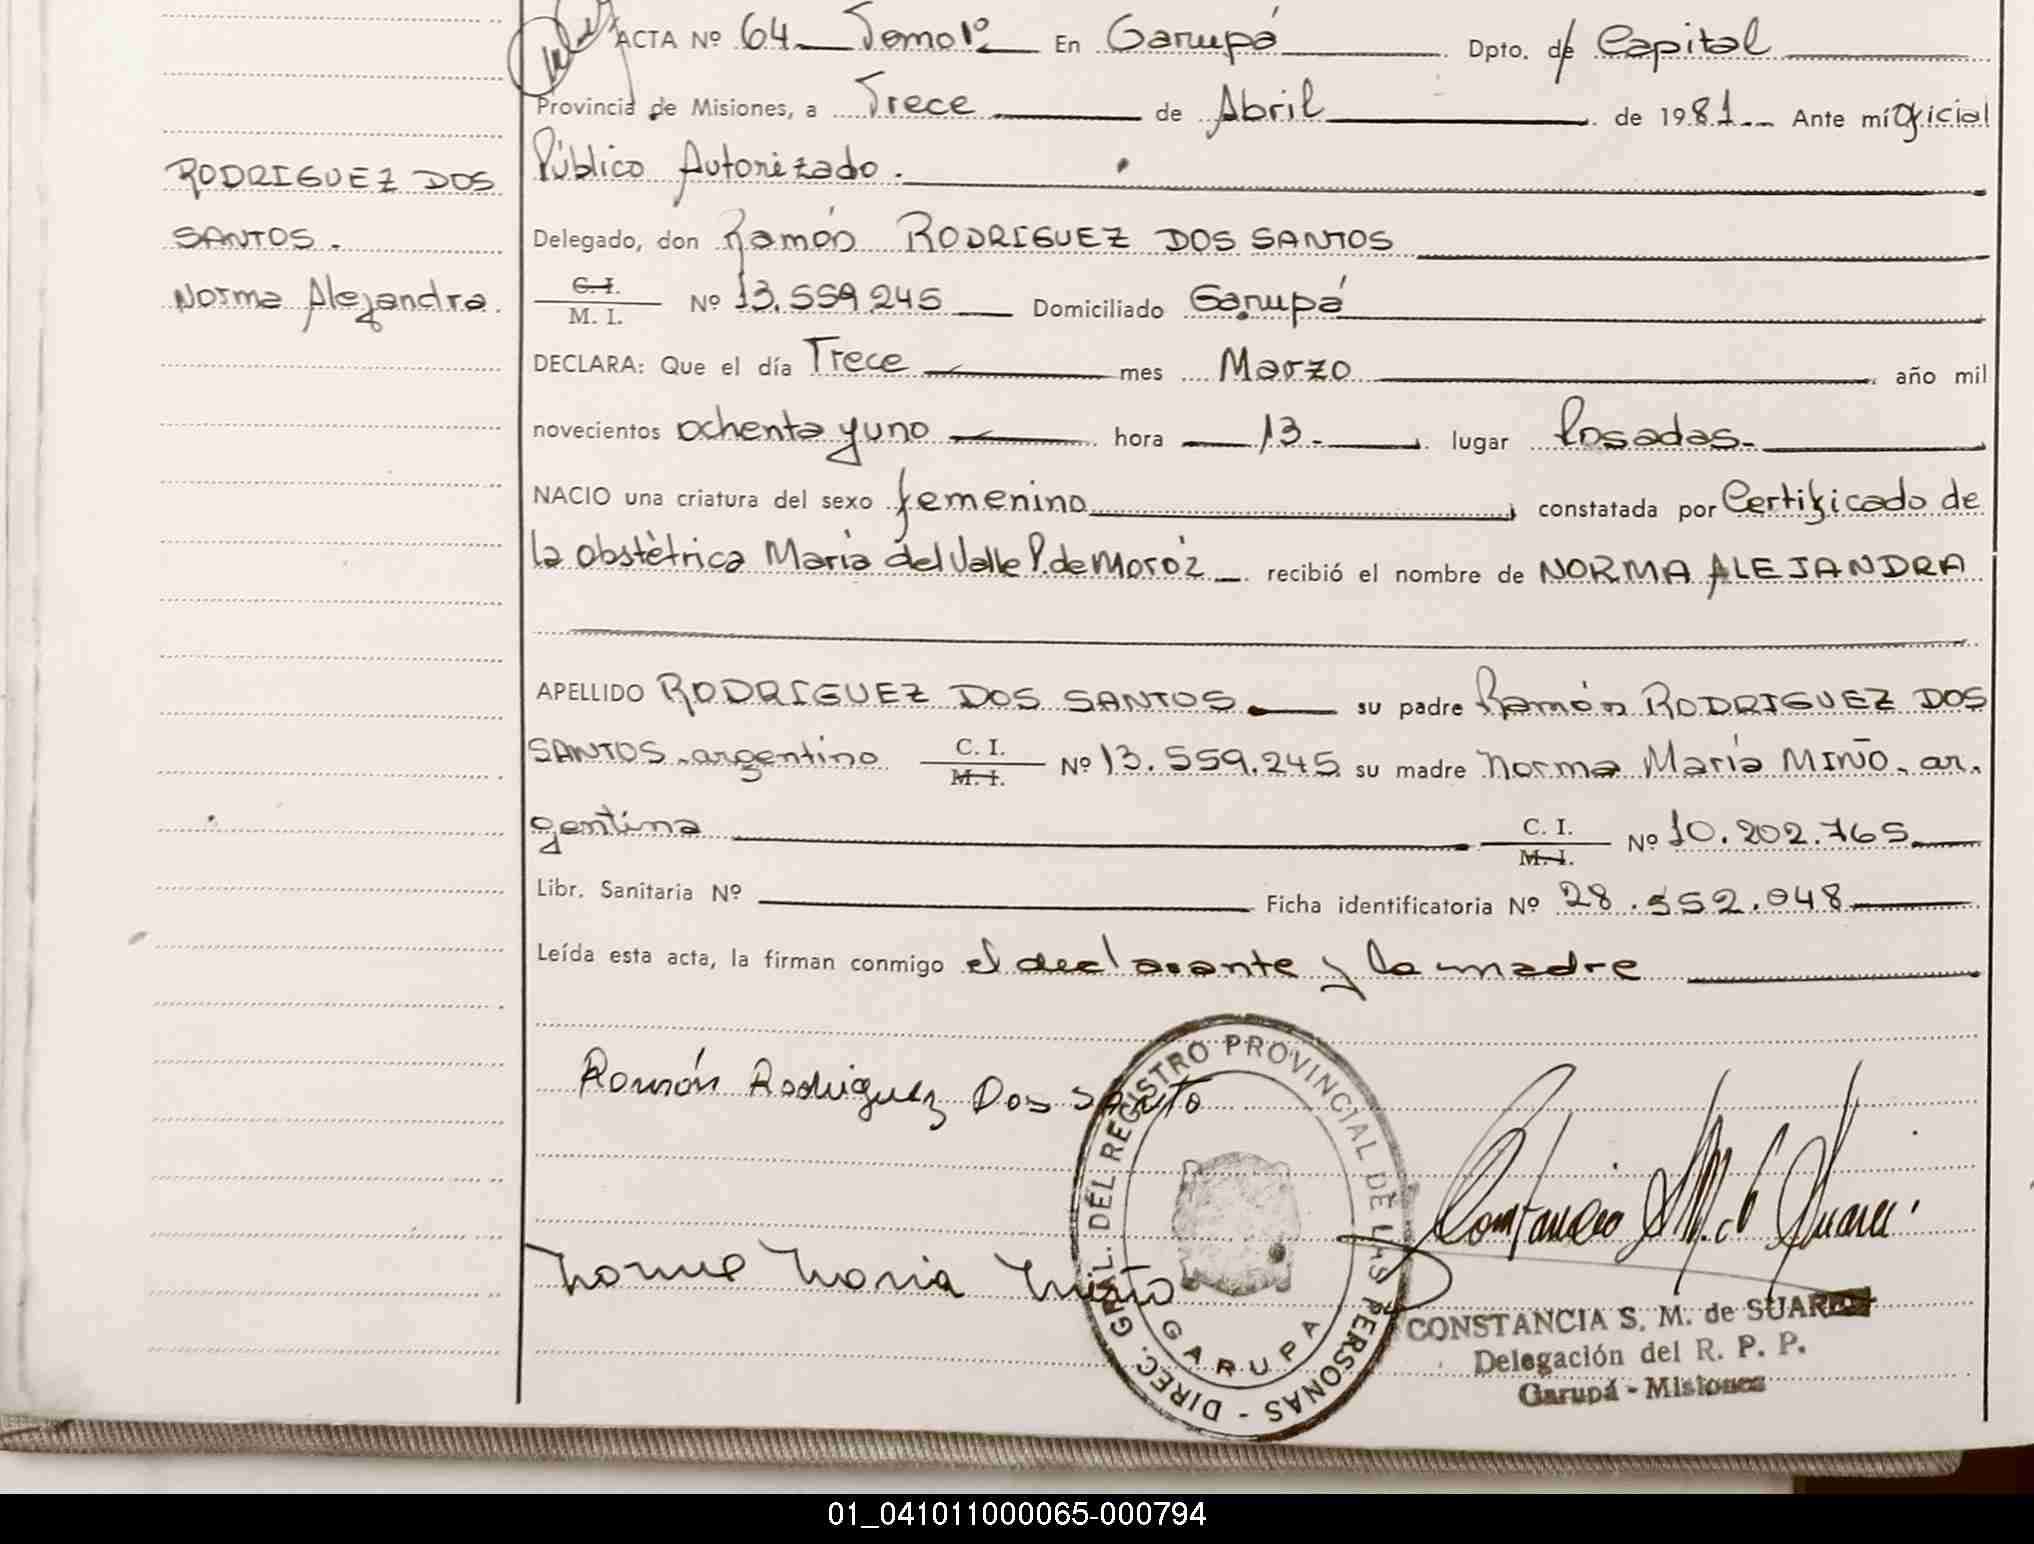 ACTA Nº 64 Tomo 1º En Garupá Dpto. de Capital
Provincia de Misiones, a Trece de Abril de 1981 Ante mí Oficial
Público Autorizado.
RODRIGUEZ DOS
SANTOS.
Norma Alejandra.
Delegado, don Ramón RODRIGUEZ DOS SANTOS
C. I.
M. I. Nº 13.559.245 Domiciliado Garupá
DECLARA: Que el día Trece mes Marzo año mil
novecientos ochenta y uno hora 13- lugar Posadas-
NACIO una criatura del sexo femenino constatada por Certificado de
la Obstètrica María del Valle P. de Moróz recibió el nombre de NORMA ALEJANDRA
APELLIDO RODRIGUEZ DOS SANTOS su padre Ramón RODRIGUEZ DOS
SANTOS, argentino C. I.
M. I. Nº 13.559.245 su madre Norma María MIÑO, ar-
gentina C. I.
M. I. Nº 10.202.765
Libr. Sanitaria Nº Ficha identificatoria Nº 28.552.048
Leída esta acta, la firman conmigo el declarante y la madre
Ramón Rodriguez Dos Santo
Norma Maria Miño
DIREC. GRAL. DEL REGISTRO PROVINCIAL DE LAS PERSONAS -
GARUPA
Constancia S. M. de Suarez
CONSTANCIA S. M. de SUAREZ
Delegación del R. P. P.
Garupá - Misiones
01_041011000065-000794